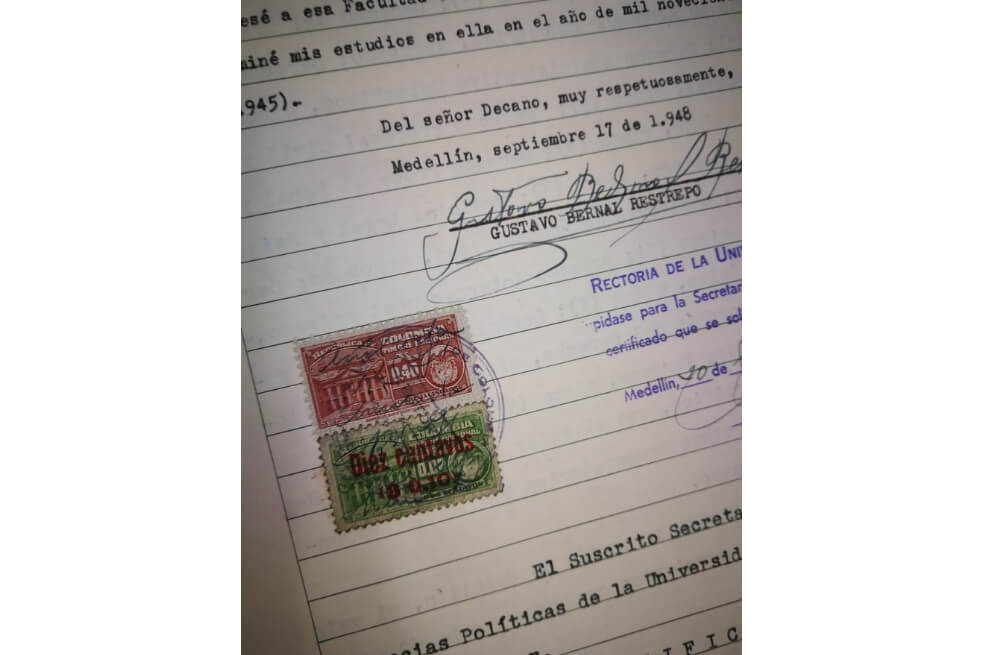 esé a esa Facultad
miné mis estudios en ella en el año de mil novecien
.945).-
Del señor Decano, muy respetuosamente,
Medellín, septiembre 17 de 1.948
Gustavo Bernal Res
GUSTAVO BERNAL RESTREPO
RECTORIA DE LA UNI
pidase para la Secretar
certificado que se sol
Medellin, 20 de
COLOMBIA
TIMBRE NACIONAL
COLOMBIA
Diez centavos
$ 0.10
El Suscrito Secreta
cias Políticas de la Universid
I F I C